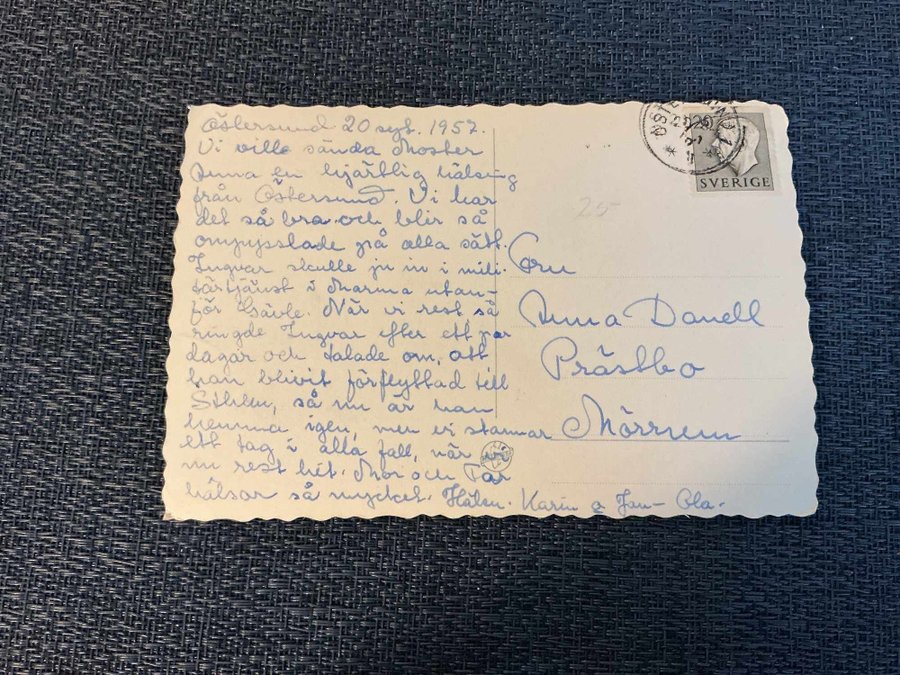 Östersund 20 sept. 1957.
Vi ville sända Moster
Anna en hjärtlig hälsning
från Östersund. Vi har
det så bra och blir så
ompysslade på alla sätt.
Ingvar skulle ju in i mili-
tärtjänst i Marma utan-
för Gävle. När vi rest så
ringde Ingvar efter ett par
dagar och talade om, att
han blivit förflyttad till
Sthlm, så nu är han
hemma igen, men vi stannar
ett tag i alla fall, när vi
nu rest hit. Mor och Far
hälsar så mycket. Hälsn. Karin o Jan-Ola.
Anna Danell
Prästbo
Mörrum
25-
SVERIGE